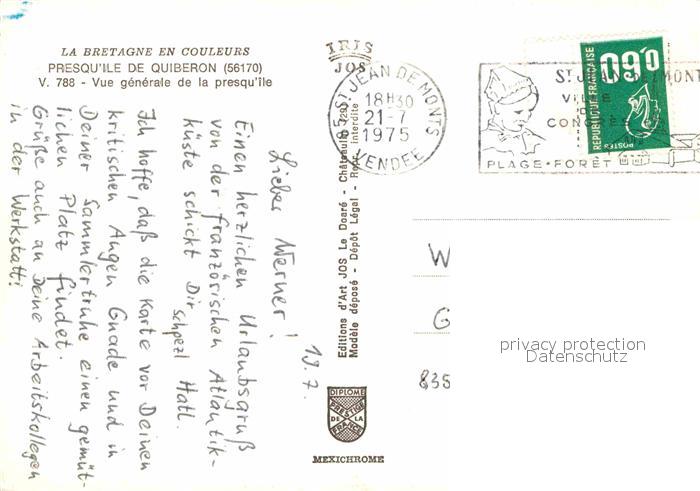 LA BRETAGNE EN COULEURS
PRESQU'ILE DE QUIBERON (56170)
V. 788 - Vue générale de la presqu'île
19. 7.
Lieber Werner!
Einen herzlichen Urlaubsgruß
von der französischen Atlantik-
küste schickt Dir
Hatl.
Ich hoffe, daß die Karte vor Deinen
kritischen Augen Gnade und in
Deiner Sammlertruhe einen gemüt-
lichen Platz findet.
Grüße auch an Deine Arbeitskollegen
in der Werkstatt!
IRIS
JOS
Editions d'Art JOS Le Doaré - Châteaulin 29
Modèle déposé - Dépôt Légal - Repr. interdite
DIPLOME
PRESTIGE
DE LA
FRANCE
MEXICHROME
85 ST JEAN DE MONTS
18H30
21-7
1975
VENDEE
ST JEAN DE MONT
VILLE
CONGRÈS
PLAGE-FORÊT
REPUBLIQUE FRANÇAISE
0,60
POSTES
W
G
835
privacy protection
Datenschutz